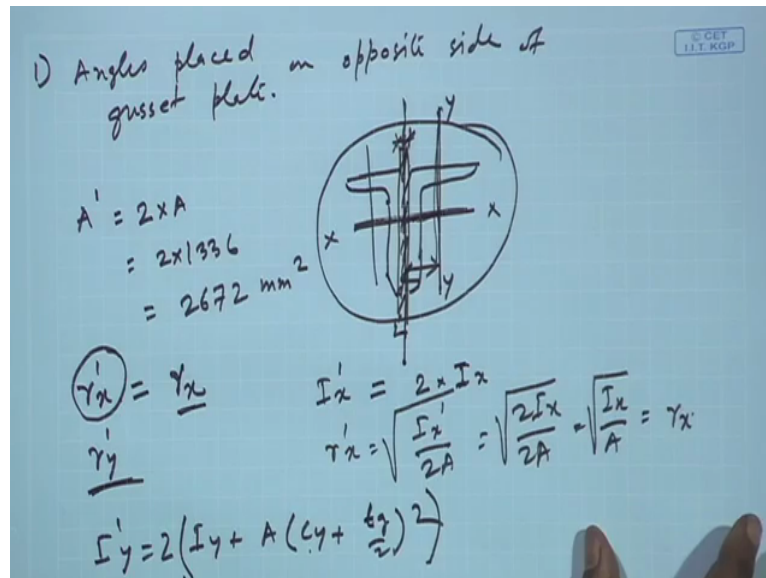 © CET
I.I.T. KGP
1) Angles placed on opposite side of
gusset plate.
y
x x
y
A' = 2xA
= 2x1336
= 2672 mm²
r'x = rx
I'x = 2 x Ix
r'y
r'x = √(Ix'/2A) = √(2Ix/2A) = √(Ix/A) = rx.
I'y = 2(Iy + A(Cy + tg/2)²)